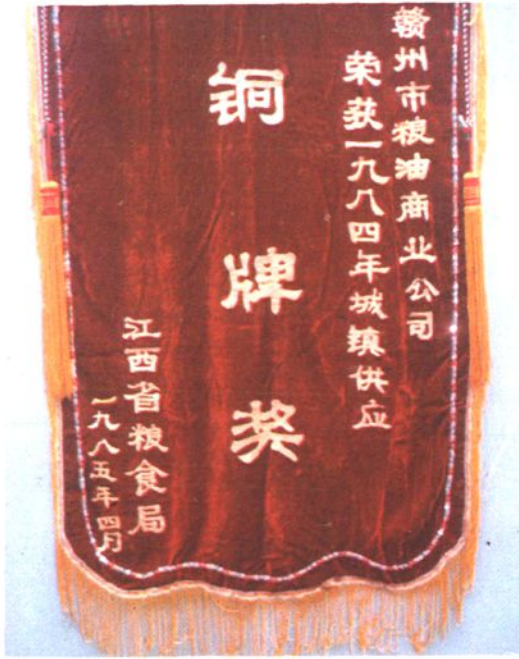 赣州市粮油商业公司
荣获一九八四年城镇供应
铜牌奖
江西省粮食局
一九八五年四月